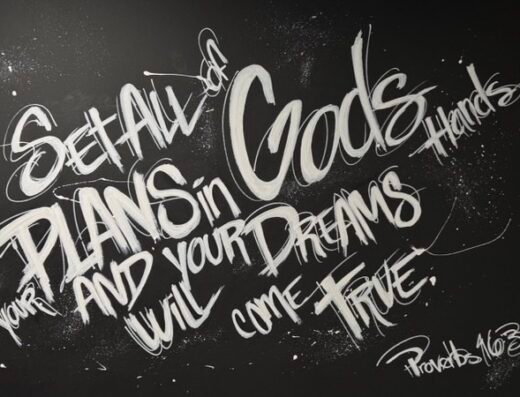 Set All of
your PLANS in Gods Hands
AND YOUR DREAMS
Will come TRUE.
Proverbs 16:3